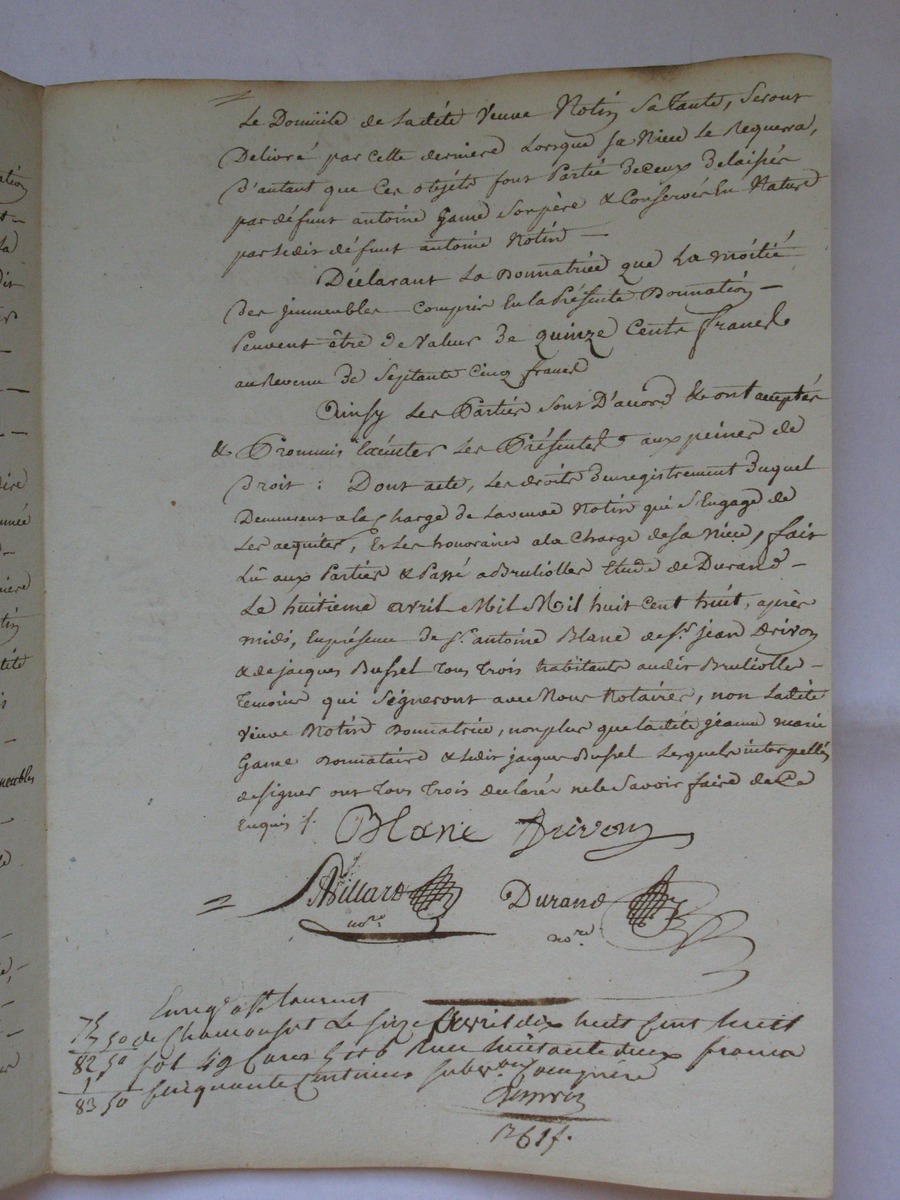 Le Domicile de Ladite Veuve Notin Sa Tante, Seront
Delivré par cette derniere Lorsque Sa Niece Le Requerra,
D'autant que Ces objets font Partie de ceux delaissés
par défunt antoine Game Son père & Conservés En Nature
par Ledit défunt antoine Notin —
Déclarant La Donnatrice que La moitié
Des jmmeubles Compris En La Présente Donnation —
Peuvent être de Valeur de quinze Cents francs
au Revenu De Septante Cinq francs
Ainsy Les Parties Sont D'acord & ont acceptés
& Promis Exécuter Les Présentes aux peines de
Droit : Dont acte, Les droits d'enregistrement duquel
Demeurent a la Charge de La veuve Notin qui S'Engage de
Les acquiter, Et Les honoraires a la Charge de sa Niece, fait
Lû aux Parties & Passé a Brulliolles Etude de Durand —
Le huitieme avril Mil Mil huit Cent huit, après
midi, En présence de Sr. antoine Blanc de Sr. jean Drivon
& de jacques Bussel Tous Trois habitants audit Brulliolles —
Temoins qui Signeront avec Nous Notaires, non Ladite
Veuve Notin Donnatrice, non plus que Ladite jeanne marie
Game Donnataire & Ledit jacques Bussel Lesquels interpellés
de signer ont Tous Trois declaré ne le Savoir faire de Ce
Enquis /.
Blanc Drivon
= Villard Durand
nore nore
Enregé a St. Laurent
75 50 de Chamousset Le Seize Avril dix huit Cent huit
82 50 fol 49 Cases 5 et 6 Reçu huitante deux francs
1
83 50 Cinquante Centimes Subvon Comprise
1261f.